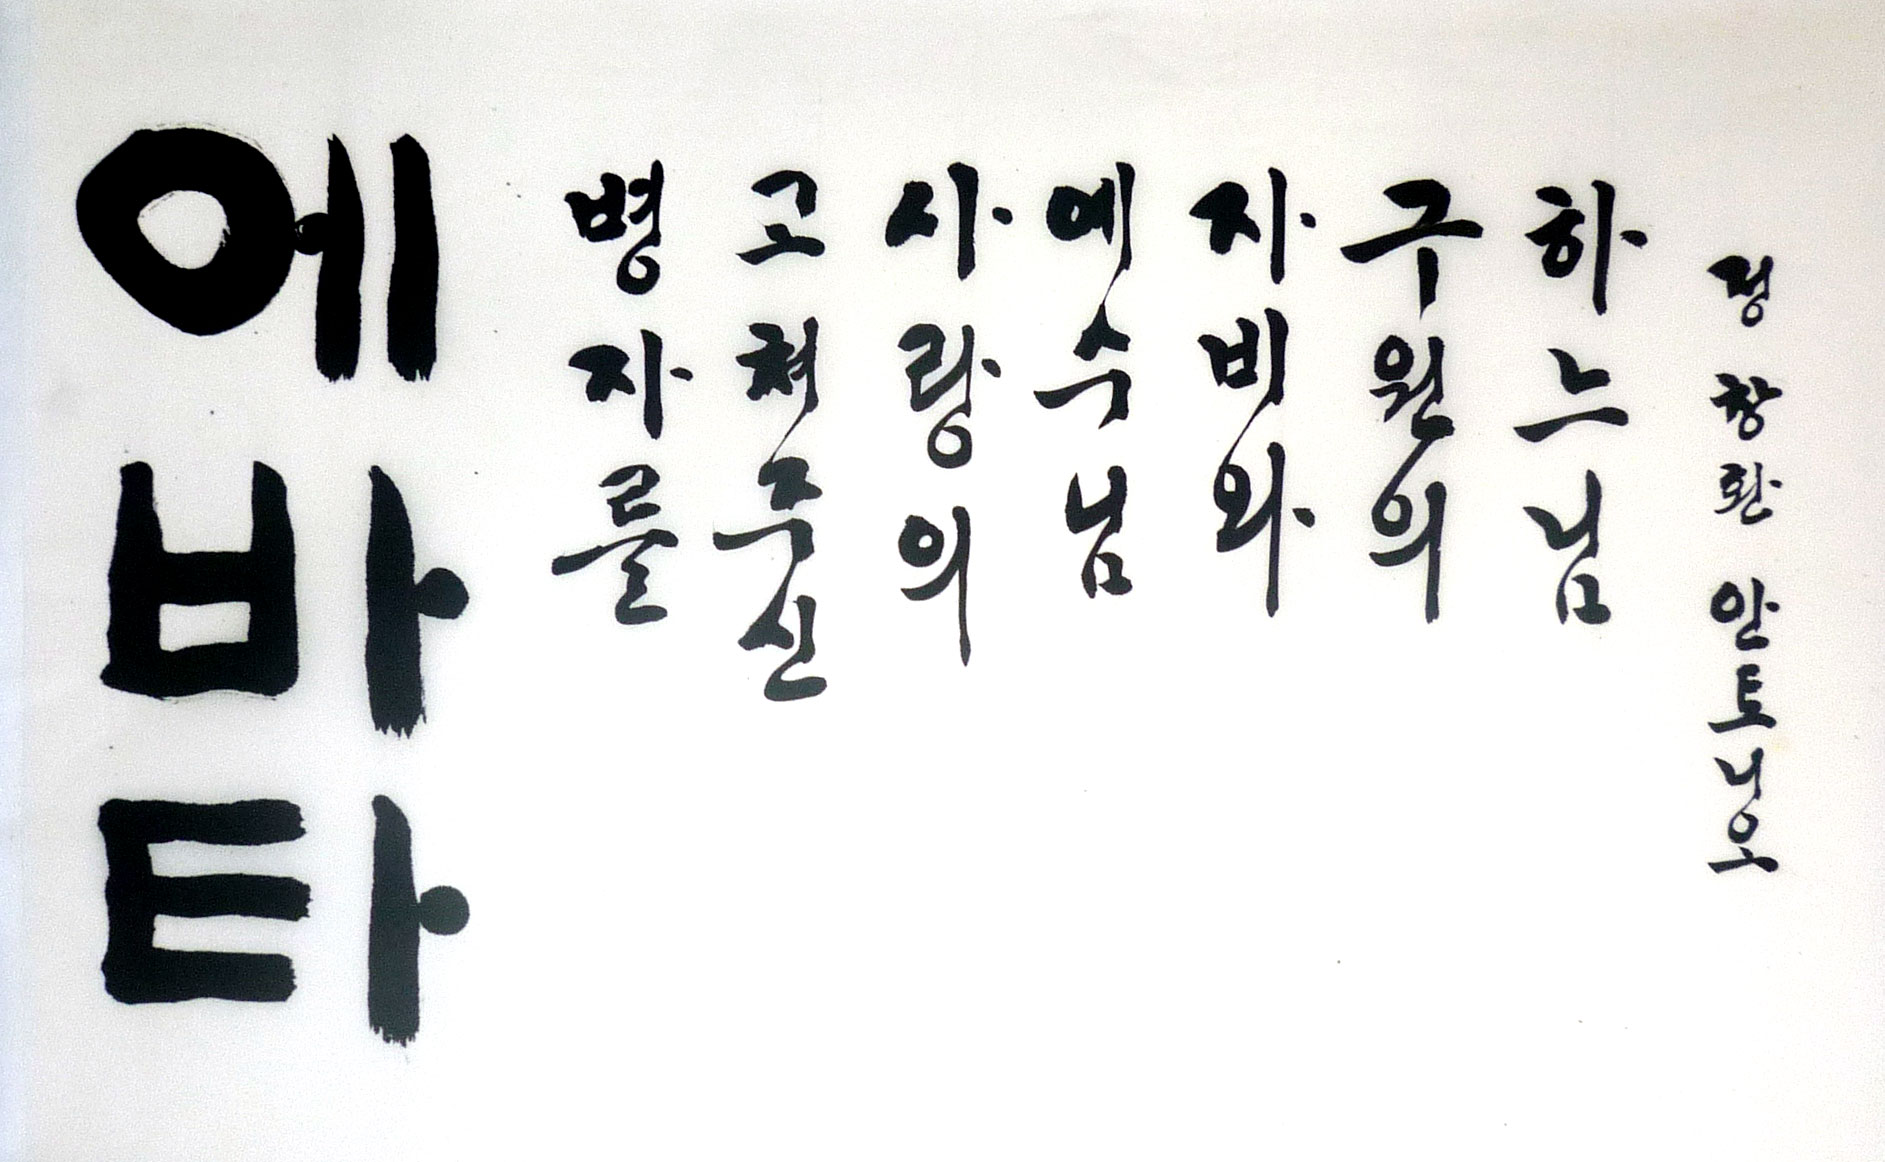 에바타
병자를
고쳐주신
사랑의
예수님
자비와
구원의
하느님
정창환 안토니오